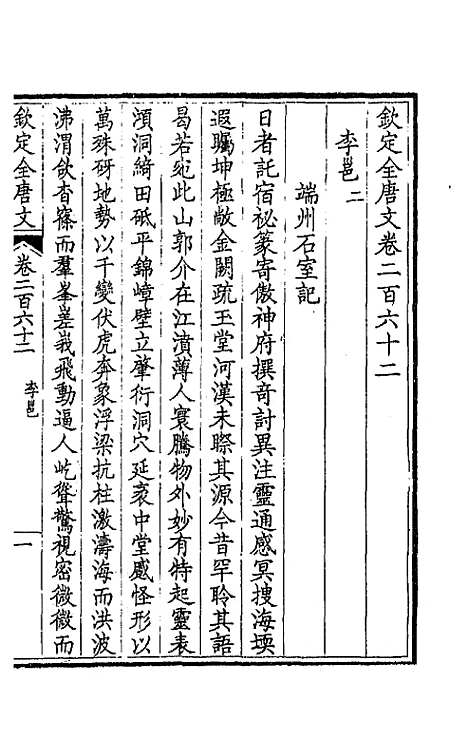 欽定全唐文卷二百六十二
李邕二
端州石室記
日者託宿祕篆寄傲神府撰竒討異注靈通感冥搜海堧
遐矚坤極敞金闕疏玉堂河漢未際其源今昔罕聆其語
曷若宛此山郭介在江濆薄人寰騰物外妙有特起靈表
澒洞綺田砥平錦嶂壁立肇衍洞穴延袤中堂感怪形以
萬殊砑地勢以千變伏虎奔象浮梁抗柱激濤海而洪波
沸渭㰸杳篠而羣峯嵳峩飛動逼人屹聳驚視密微微而
欽定全唐文
卷二百六十二
李邕
一